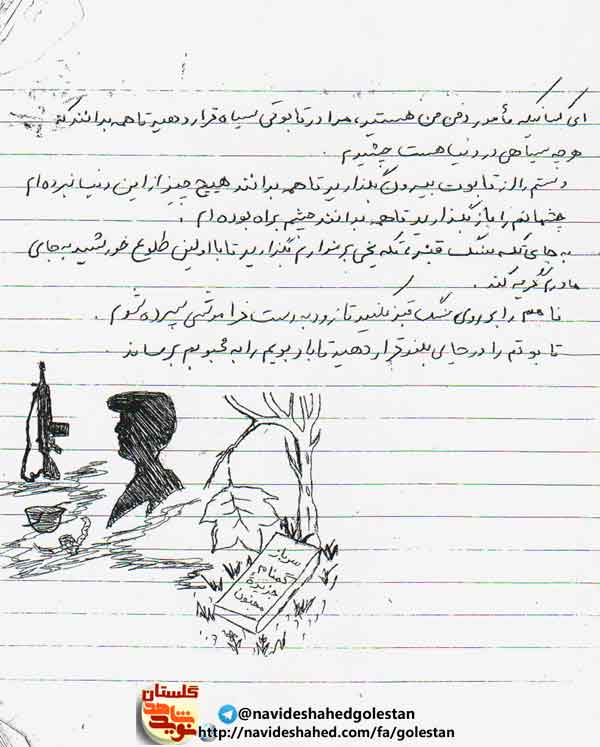 ای کسانیکه مأمور دفن من هستید، مرا در تابوتی سیاه قرار دهید تا همه بدانند که
هرچه سیاهی در دنیا هست چشیدم.
دستم را از تابوت بیرون بگذارید تا همه بدانند هیچ چیز از این دنیا نبرده ام
چشمانم را باز بگذارید تا همه بدانند چشم براه بوده ام.
به جای تکه سنگ قبر، تکه یخی بر مزارم بگذارید تا با اولین طلوع خورشید به جای
مادرم گریه کند.
نامم را بر روی سنگ قبر نکنید تا زود به دست فراموشی سپرده شوم.
تابوتم را در جای بلند قرار دهید تا باد بویم را به محبوبم برساند.
سرباز
گمنام
جزیرهٔ
مجنون
گلستان
نوید شاهد
@navideshahedgolestan
http://navideshahed.com/fa/golestan